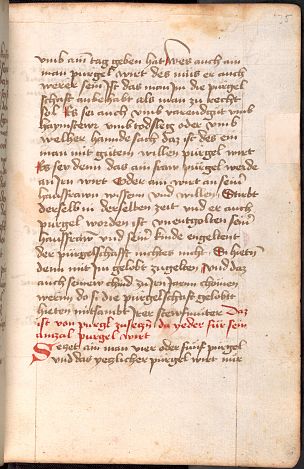 vmb ain tag geben hat wes auch ain
man purgel wirt des mus er auch
werer sein Ist das man In die purgel
schaft anbehabt als man zu recht
sol Es sei auch vmb varendgůt vmb
haymstewr vmb todsleg oder vmb
welher hannde sach daz ist des ein
man mit gůtem willen pürgel wirt
Es sey denn das ain fraw pürgel werde
an Irn wirt Oder ain wirt an seiner
hausfrawn wissenn vnd willen Stirbt
derselb in derselben zeit vnd er auch
pürgel worden ist vnentgolten seiner
hausfraw vnd seiner kinde engeltent
der pürgelschafft nichtes nicht Si hietn
denn mit Im gelobt zugelten vnd daz
auch seinew chind zu Irn Jaren chomen
wernn do si die pürgelschaft gelobt
hieten mitsambt Irer stewfmuter Daz
ist von purgl zusetzn da yeder für sein
anzal purgel wirt
Setzet ain man vier oder fünf purgel
vnd das yeglicher pürgel wirt nur